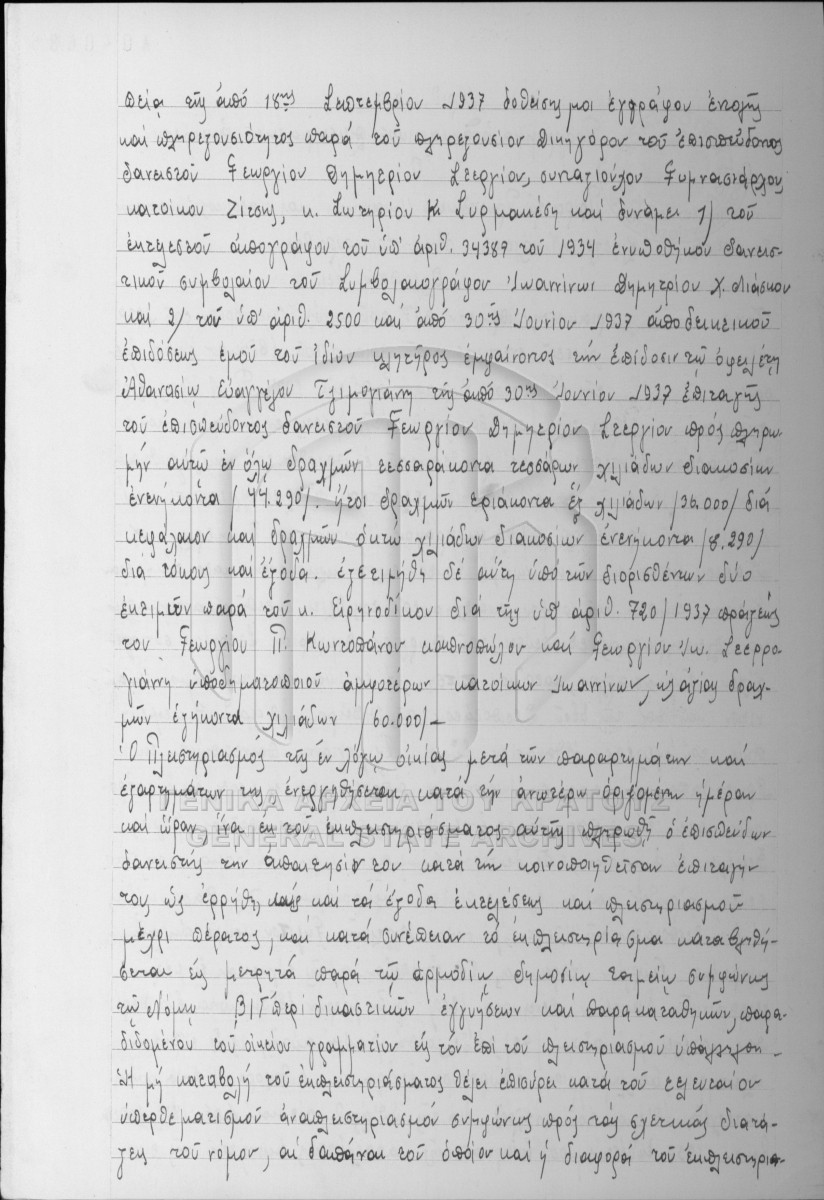 πείᾳ τῆς ἀπό 18ης Σεπτεμβρίου 1937 δοθείσης μοι ἐγγράφου ἐντολῆς
καί πληρεξουσιότητος παρά τοῦ πληρεξουσίου Δικηγόρου τοῦ ἐπισπεύδοντος
δανειστοῦ Γεωργίου Δημητρίου Στεργίου, συνταξιούχου Γυμνασιάρχου
κατοίκου Ζίτσης, κ. Σωτηρίου Κ. Συρμακέση καί δυνάμει 1) τοῦ
ἐκτελεστοῦ ἀπογράφου τοῦ ὑπ' ἀριθ. 34387 τοῦ 1934 ἐνυποθήκου δανεισ-
τικοῦ συμβολαίου τοῦ Συμβολαιογράφου Ἰωαννίνων Δημητρίου Χ. Λιάσκου
καί 2) τοῦ ὑπ' ἀριθ. 2500 καί ἀπό 30ης Ἰουνίου 1937 ἀποδεικτικοῦ
ἐπιδόσεως ἐμοῦ τοῦ ἰδίου κλητῆρος ἐμφαίνοντος τήν ἐπίδοσιν τῷ ὀφειλέτῃ
Ἀθανασίῳ Εὐαγγέλου Τζιμογιάνη τῆς ἀπό 30ης Ἰουνίου 1937 ἐπιταγῆς
τοῦ ἐπισπεύδοντος δανειστοῦ Γεωργίου Δημητρίου Στεργίου πρός πληρω-
μήν αὐτῷ ἐν ὅλῳ δραχμῶν τεσσαράκοντα τεσσάρων χιλιάδων διακοσίων
ἐνενήκοντα /44.290/. ἤτοι δραχμῶν τριάκοντα ἕξ χιλιάδων /36.000/ διά
κεφάλαιον καί δραχμῶν ὀκτώ χιλιάδων διακοσίων ἐνενήκοντα /8.290/
διά τόκους καί ἔξοδα. ἐξετιμήθη δέ αὕτη ὑπό τῶν διορισθέντων δύο
ἐκτιμητῶν παρά τοῦ κ. Εἰρηνοδίκου διά τῆς ὑπ' ἀριθ. 720/1937 πράξεώς
του Γεωργίου Π. Κωντοπάνου καπνοπώλου καί Γεωργίου Ἰω. Στερρο-
γιάννη ὑποδηματοποιοῦ ἀμφοτέρων κατοίκων Ἰωαννίνων, ἀξίας δραχ-
μῶν ἑξήκοντα χιλιάδων /60.000/—
Ὁ Πλειστηριασμός τῆς ἐν λόγῳ οἰκίας μετά τῶν παραρτημάτων καί
ἐξαρτημάτων της ἐνεργηθήσεται κατά τήν ἀνωτέρω ὁριζομένην ἡμέραν
καί ὥραν ἵνα ἐκ τοῦ ἐκπλειστηριάσματος αὐτῆς πληρωθῇ ὁ ἐπισπεύδων
δανειστής την ἀπαίτησίν του κατά τήν κοινοποιηθεῖσαν ἐπιταγήν
του ὡς ἐρρήθη, καί τά ἔξοδα ἐκτελέσεως καί πλειστηριασμοῦ
μέχρι πέρατος, καί κατά συνέπειαν τό ἐκπλειστηρίασμα καταβληθή-
σεται εἰς μετρητά παρά τῷ ἁρμοδίῳ δημοσίῳ ταμείῳ συμφώνως
τῷ Νόμῳ ΒΙΓ περί δικαστικῶν ἐγγυήσεων καί παρακαταθηκῶν, παρα-
διδομένου τοῦ οἰκείου γραμματίου εἰς τόν ἐπί τοῦ πλειστηριασμοῦ ὑπάλληλον.-
Ἡ μή καταβολή τοῦ ἐκπλειστηριάσματος θέλει ἐπισύρει κατά τοῦ τελευταίου
ὑπερθεματισμοῦ ἀναπλειστηριασμόν συμφώνως πρός τάς σχετικάς διατά-
ξεις τοῦ νόμου, αἱ δαπάναι τοῦ ὁποίου καί ἡ διαφορά τοῦ ἐκπλειστηριά-
ΓΕΝΙΚΑ ΑΡΧΕΙΑ ΤΟΥ ΚΡΑΤΟΥΣ
GENERAL STATE ARCHIVES